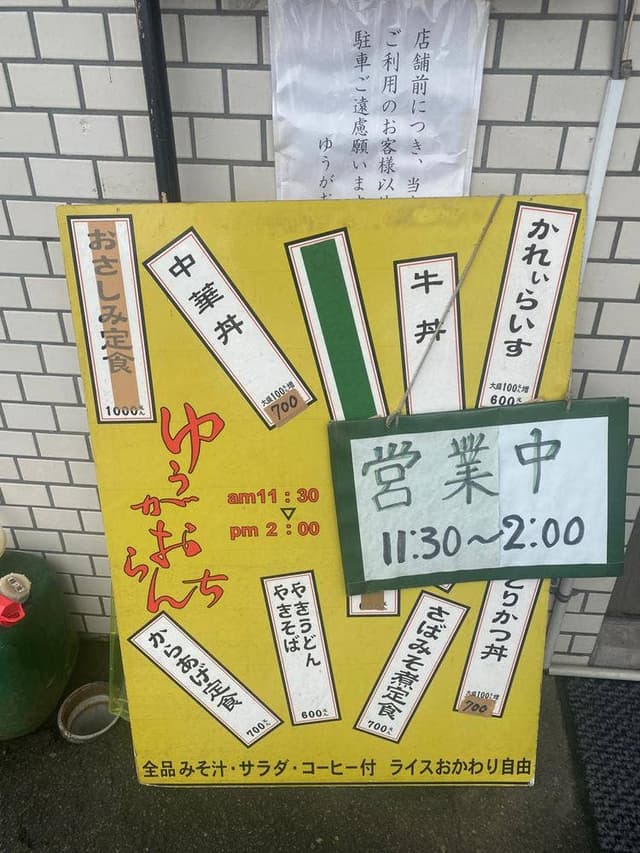 店舗前につき、当
ご利用のお客様以
駐車ご遠慮願いま
ゆうがお
おさしみ定食
1000えん
中華丼
大盛100えん増
700
牛丼
かれぃらいす
大盛100えん増
600えん
ゆうがおらんち
am11:30
▽
pm 2:00
営業中
11:30～2:00
からあげ定食
700えん
やきうどん
やきそば
600えん
さばみそ煮定食
700えん
とりかつ丼
大盛100えん増
700
全品 みそ汁・サラダ・コーヒー付 ライスおかわり自由